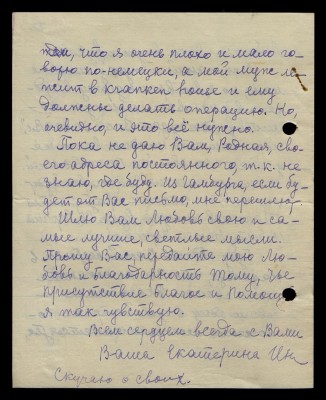 тем, что я очень плохо и мало го-
ворю по-немецки, а мой муж ле-
жит в kranken house и ему
должны делать операцию. Но,
очевидно, и это всё нужно.
Пока не даю Вам, Родная, сво-
его адреса постоянного, т.к. не
знаю, где буду. Из Гамбурга, если бу-
дет от Вас письмо, мне перешлют.
Шлю Вам Любовь свою и са-
мые лучшие, светлые мысли.
Прошу Вас, передайте мою Лю-
бовь и благодарность Тому, Чье
присутствие благое и помощь
я так чувствую.
Всем сердцем всегда с Вами
Ваша Екатерина Ин
Скучаю о своих.